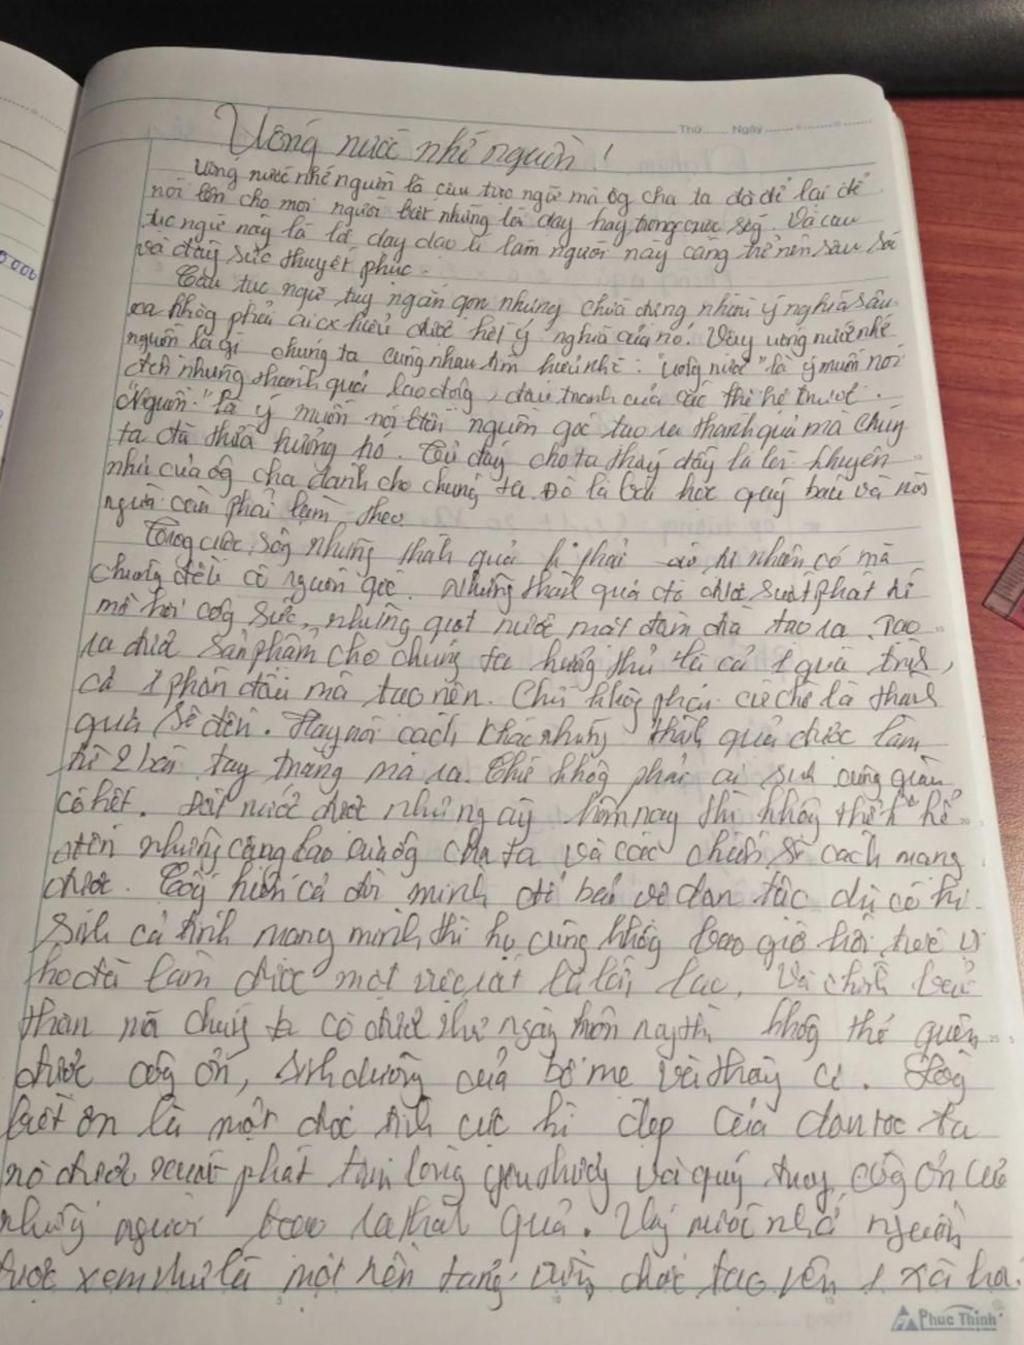 Thứ ..... Ngày
Uống nước nhớ nguồn!
Uống nước nhớ nguồn là câu tục ngữ mà ôg cha ta đã để lại để
nói lên cho mọi người biết những lời dạy hay trong cuộc sốg. Và câu
tục ngữ này là lời dạy dạo lí làm người này càng trở nên sâu sắc
và đầy sức thuyết phục.
Câu tục ngữ tuy ngắn gọn nhưng chứa đựng nhiều ý nghĩa sâu
xa khôg phải ai cx hiểu được hết ý nghĩa của nó. Vậy uống nước nhớ
nguồn là gì chúng ta cùng nhau tìm hiểu nhé: "Uống nước" là ý muốn nói
đến những thành quả lao động, đấu tranh của các thế hệ trước.
"Nguồn" là ý muốn nói đến nguồn gốc tạo ra thành quả mà chúng
ta đã thừa hưởng nó. Từ đây cho ta thấy đây là lời khuyên
nhủ của ôg cha dành cho chúng ta. Đó là bài học quý báu và mỗi
người cần phải làm theo
Trong cuộc sống những thành quả k phải tự nhiên có mà
chúng đều có nguồn gốc. Những thành quả đó được suất phát từ
mồ hôi côg sức, những giọt nước mắt đầm đìa tạo ra. Tạo
ra được sản phẩm cho chúng ta hưởng thụ là cả 1 quá trình,
cả 1 phấn đấu mà tạo nên. Chứ khôg phải cứ chờ là thành
quả sẽ đến. Hay nói cách khác những thành quả được làm
từ 2 bàn tay trắng mà ra. Chứ khôg phải ai sinh cũng giàu
có hết. Đất nước được như ngày hôm nay thì không thể k kể
đến những công lao của ôg cha ta và các chiến sĩ cách mạng
được. Cốg hiến cả đời mình để bảo vệ dân tộc dù có hi
sinh cả tính mạng mình thì họ cũng khôg bao giờ hối tiếc vì
họ đã làm được một việc rất là lớn lao. Và chính bản
thân mà chúng ta có được như ngày hôm nay thì khôg thể quên
được côg ơn, sinh dưỡng của bố mẹ và thầy cô. Lòng
biết ơn là một đức tính cực kì đẹp của dân tộc ta
nó được xuất phát từ lòng yêu thương và quý trọng côg ơn của
những người tạo ra thành quả. Uống nước nhớ nguồn
được xem như là một nền tảng vữg chắc tạo nên 1 xã hội
Phuc Thinh